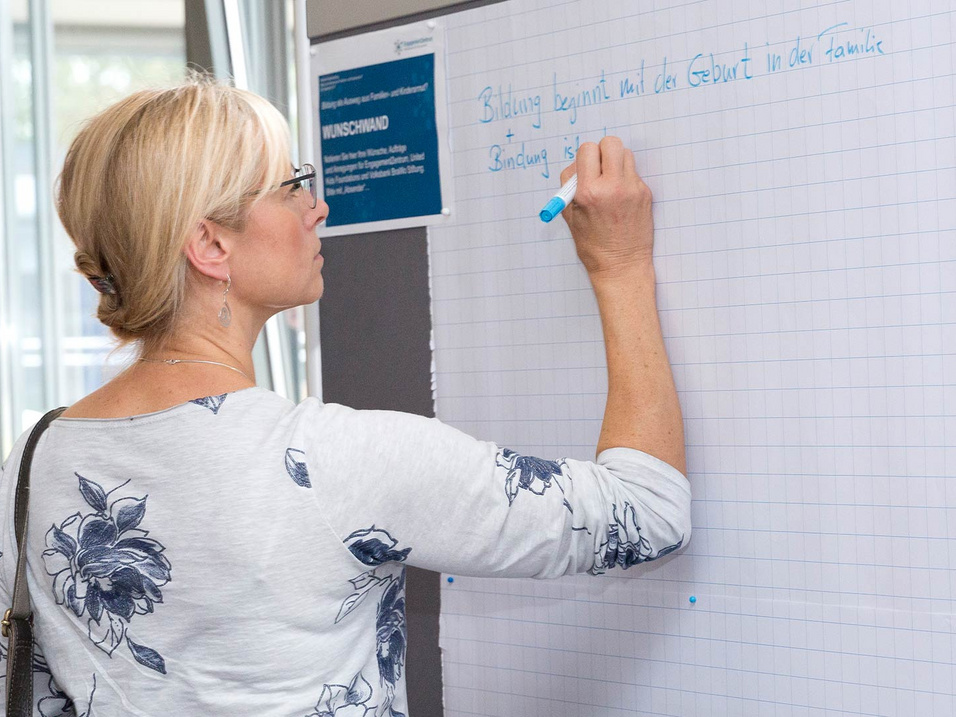 EngagementZentrum
Bildung als Ausweg aus Familien- und Kinderarmut?
WUNSCHWAND
Notieren Sie hier Ihre Wünsche, Aufträge
und Anregungen für EngagementZentrum, United
Kids Foundations und Volksbank BraWo Stiftung.
Bitte mit „Absender“...
Bildung beginnt mit der Geburt in der Familie
+
Bindung ist